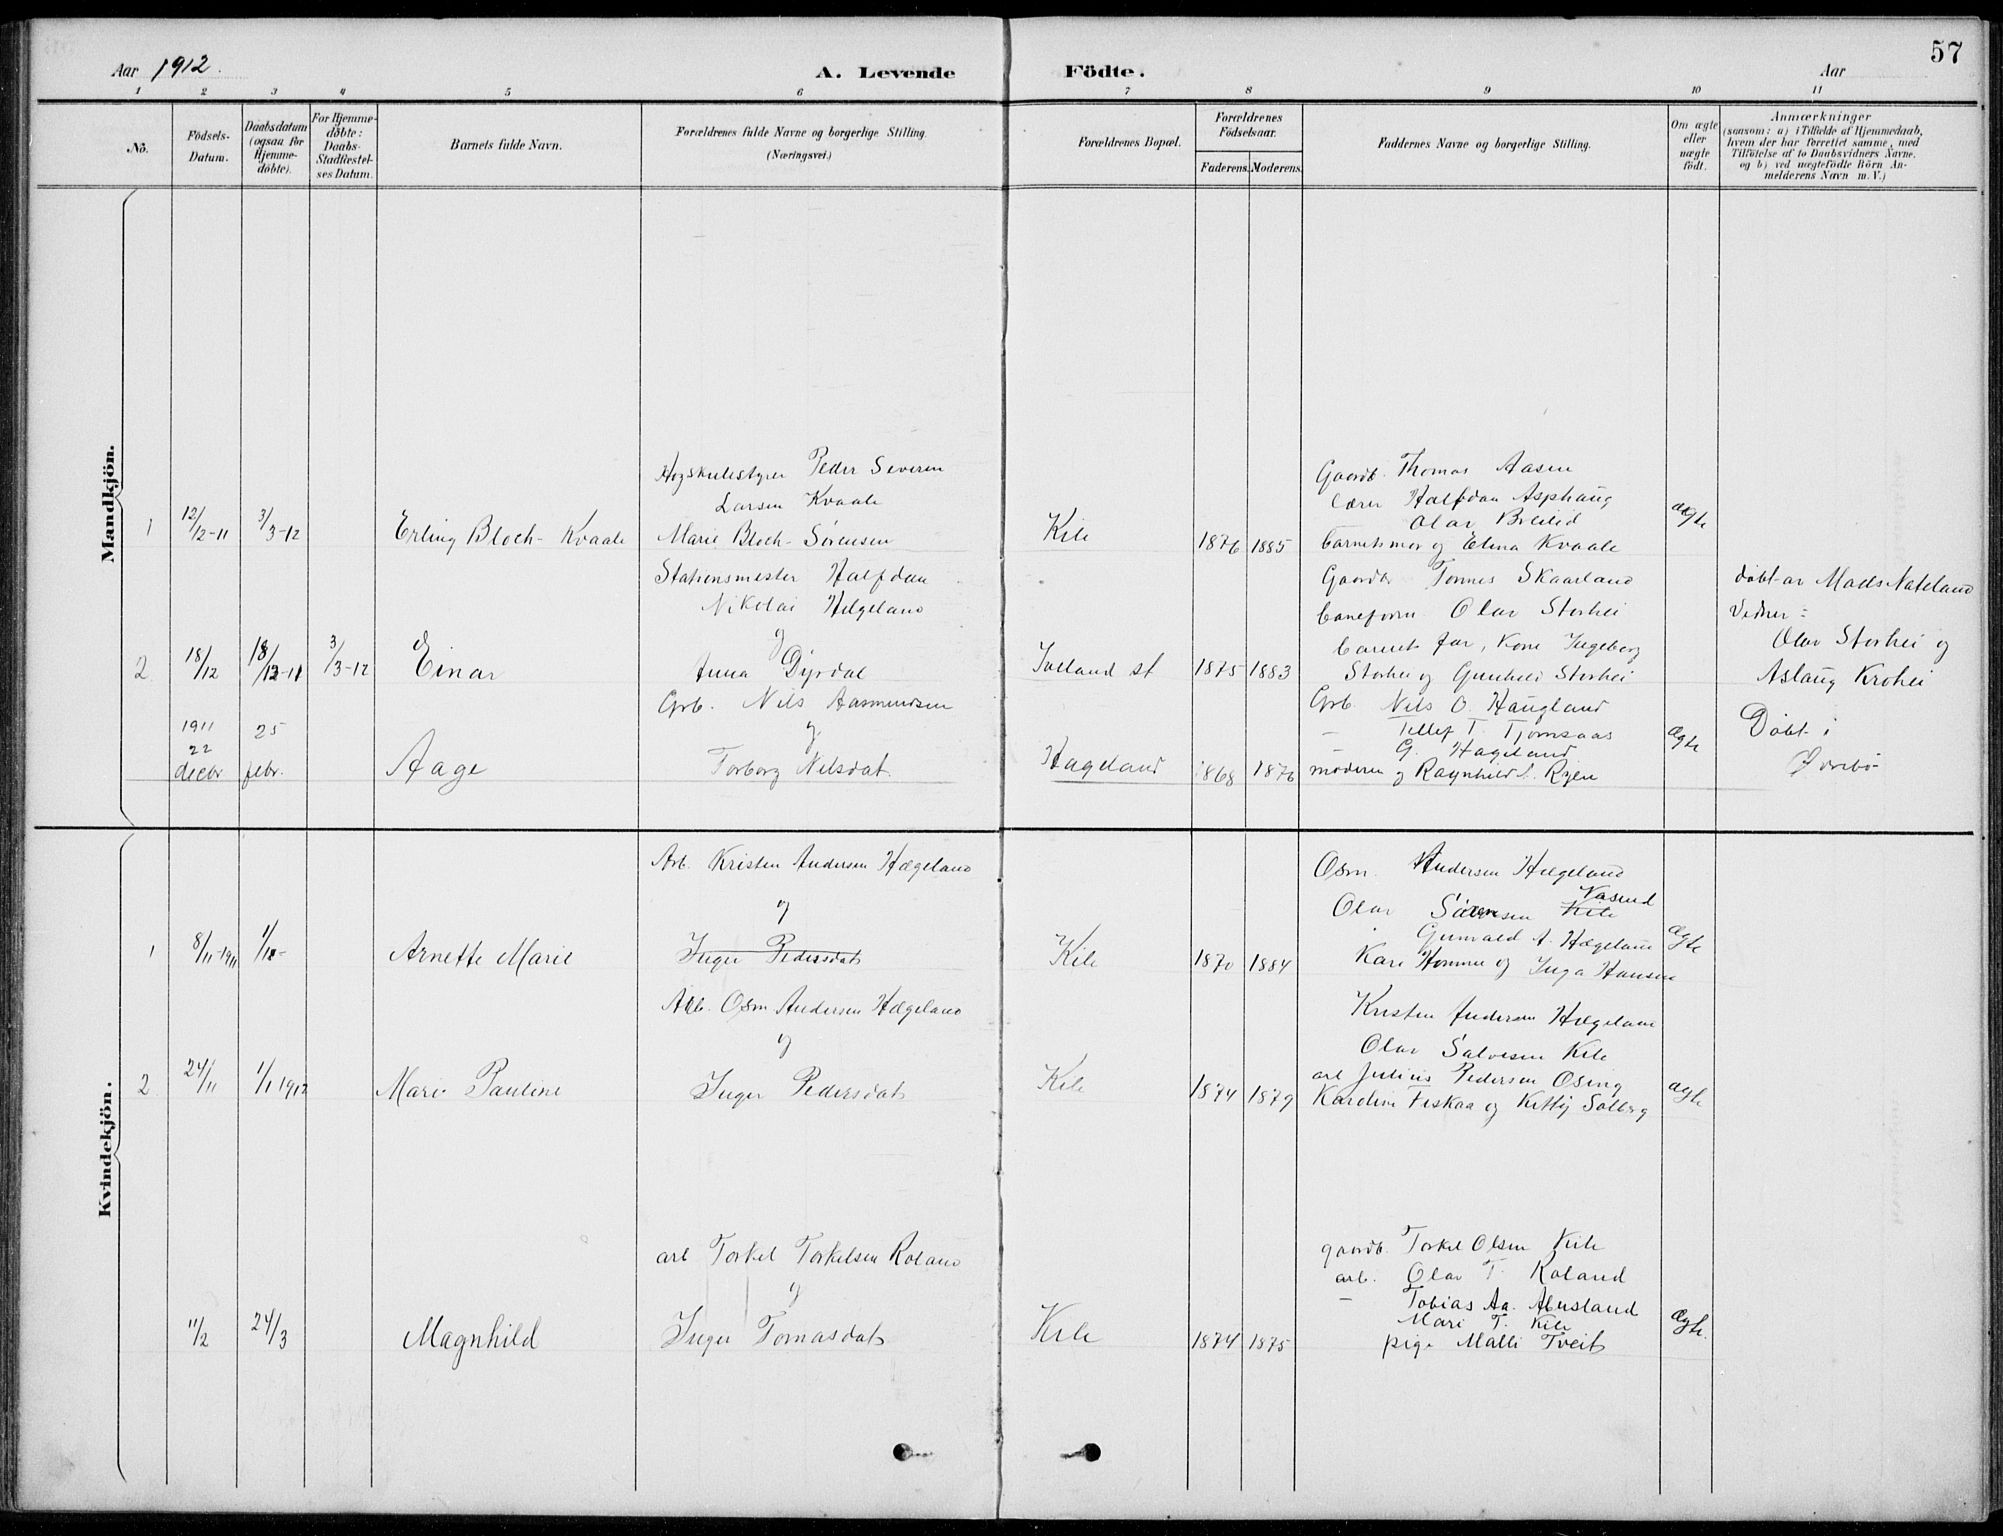 Aar 1912.
A. Levende Födte.
Aar
57
1 2 3 4 5 6 7 8 9 10 11
Nö.
Födsels-Datum.
Daabsdatum (ogsaa for Hjemme-döbte).
For Hjemme-döbte: Daabs-Stadfæstel-ses Datum.
Barnets fulde Navn.
Forældrenes fulde Navne og borgerlige Stilling.
(Næringsvei.)
Forældrenes Bopæl.
Forældrenes Födselsaar.
Faderens. Moderens.
Faddernes Navne og borgerlige Stilling.
Om ægte eller uægte födt.
Anmærkninger
(saasom: a) i Tilfælde af Hjemmedaab, hvem der har forrettet samme, med Tilföielse af to Daabsvidners Navne. og b) ved uægtefödte Börn An-melderens Navn m. V.)
Mandkjön.
1 12/12-11 3/3-12 Erling Bloch-Kvaale
Peder Severin
Larsen Kvaale
Marie Bloch-Sörensen
Kile 1876 1885
Gaardb. Thomas Aasen
lærer Halfdan Asphaug
Olav Breilid
barnets mor og Elena Kvaale
ægte
2 18/12 3/3-12 Einar
Stationsmester Halfdan
Nikolai Helgeland
og
Anna Dyrdal
Iveland st 1875 1883
Gaardbr Tønnes Skaarland
baneform. Olav Storhei
barnets far, Kone Ingeborg
Storhei og Gunheid Storhei
döbt av Mads Nateland
Vidner:
Olav Storhei og
Aslaug Krohei
1911
22 decbr 25 febr. Aage
Grb. Nils Aasmundsen
og
Torborg Nilsdat.
Hageland 1868 1876
Grb. Nils O. Haugland
- Tellef T. Tjomsaas
- G. Hageland
moderen og Ragnhild Ryen
Ægte
Döbt i
Øvrebö
Kvindekjön.
1 8/11-1911 Arnette Marie
Arb. Kristen Andersen Hægeland
og
Inger Pedersdat
Kile 1870 1884
Osm. Andersen Hægeland
Olav Kile
Gunvald A. Hægeland
Kari Homme og Inga Hansen
Ægte
2 24/11 1/1 1912 Mari Pauline
Arb. Osm Andersen Hægeland
og
Inger Pedersdat
Kile 1874 1879
Kristen Andersen Hægeland
Olav Salvesen Kile
arb Julius Pedersen Osing
Karoline Fiskaa og Kitty Solberg
ægte
11/2 24/3 Magnhild
arb Torkel Torkelsen Roland
og
Inger Tomasdat
Kile 1874 1875
gaardb. Torkel Olsen Kile
arb. Olav T. Roland
- Tobias Aa. Abusland
Mari T. Kile
pige Malli Tveit
Ægte.